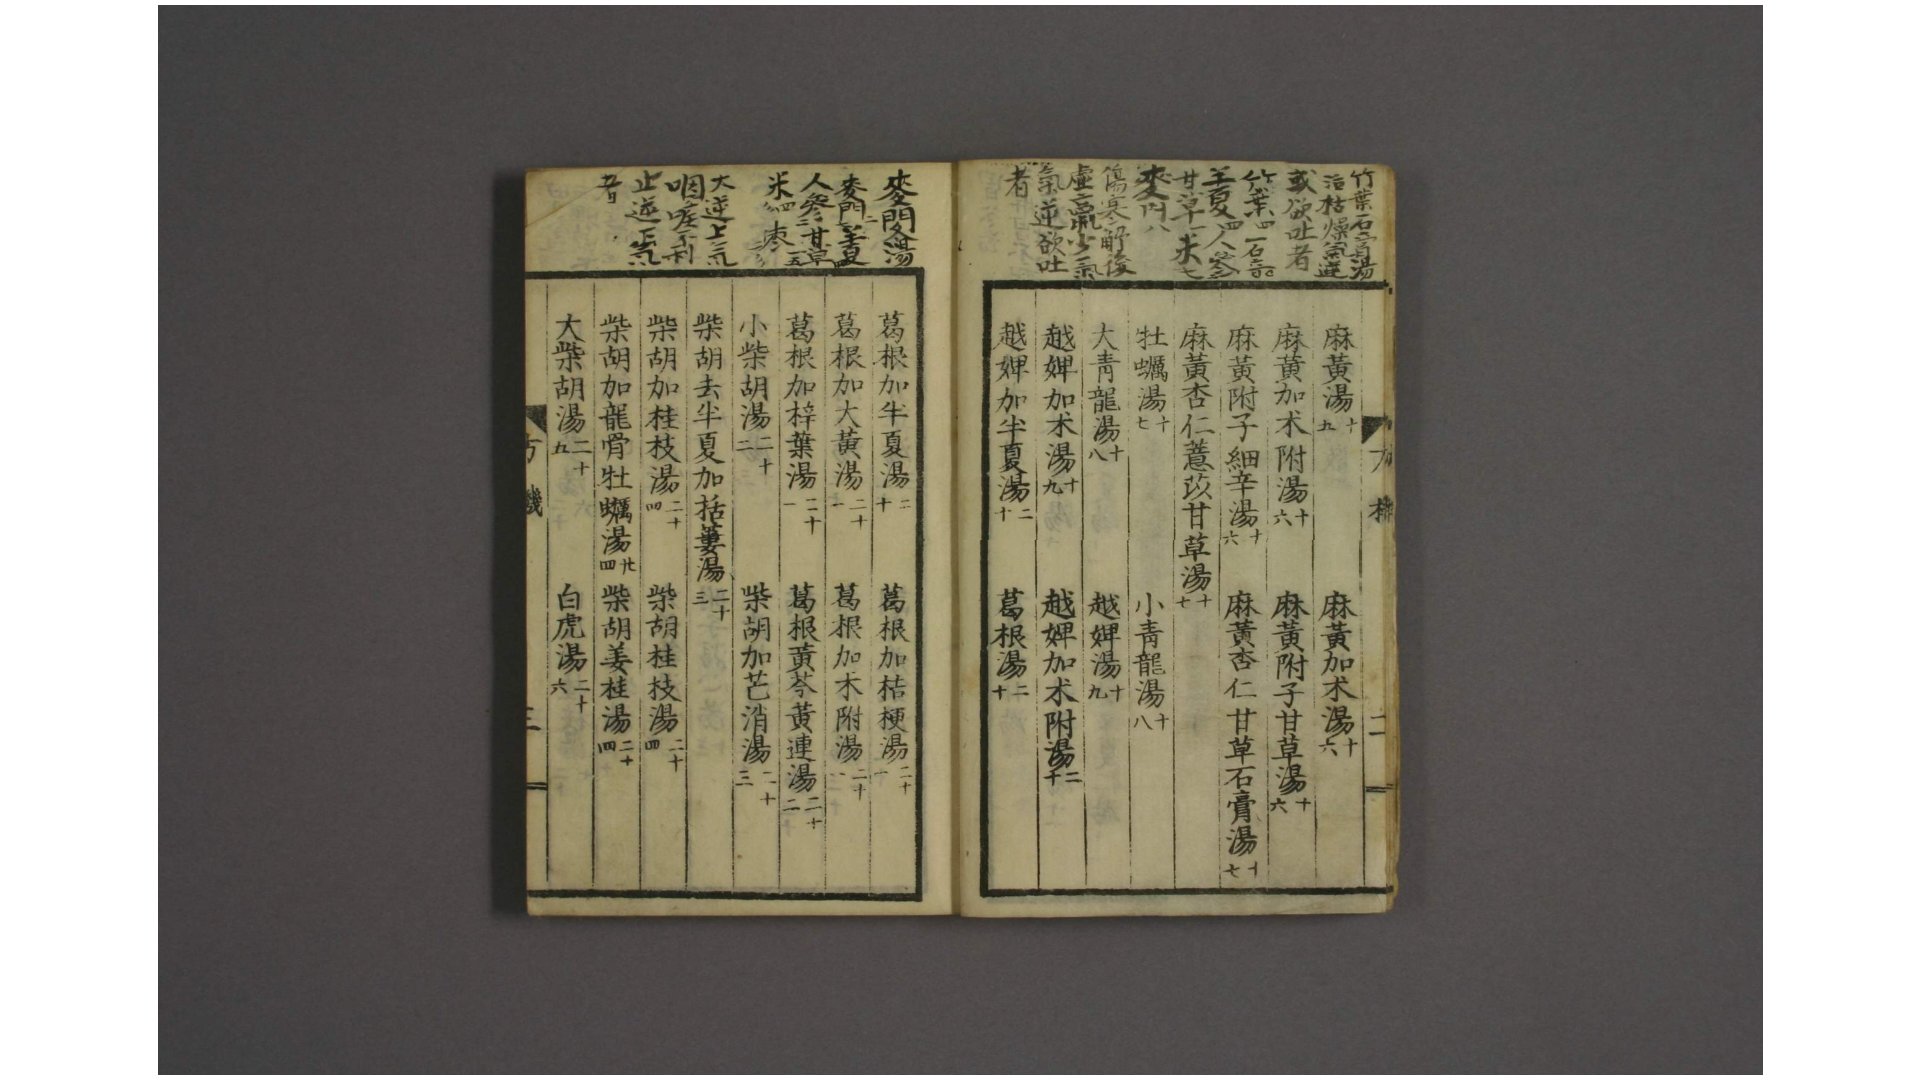 竹葉石膏湯
治枯燥氣逆
或欲吐者
竹葉四石膏
半夏四人參
甘草一米七
麥門八
傷寒解後
虛羸少氣
氣逆欲吐
者
麻黃湯十九
麻黃加朮湯十六
麻黃加朮附湯十六
麻黃附子甘草湯十六
麻黃附子細辛湯十六
麻黃杏仁甘草石膏湯十七
麻黃杏仁薏苡甘草湯十七
牡蠣湯十七
小青龍湯十八
大青龍湯十八
越婢湯十九
越婢加朮湯十九
越婢加朮附湯二十
越婢加半夏湯二十
葛根湯二十
二
麥門湯
麥門二半夏
人參二甘草
米四棗五
大逆上氣
咽喉不利
止逆下氣
者
葛根加半夏湯二十
葛根加桔梗湯二十
葛根加大黃湯二十一
葛根加朮附湯二十
葛根加梓葉湯二十一
葛根黃芩黃連湯二十二
小柴胡湯二十二
柴胡加芒消湯二十三
柴胡去半夏加括蔞湯二十三
柴胡加桂枝湯二十四
柴胡桂枝湯二十四
柴胡加龍骨牡蠣湯廿四
柴胡姜桂湯二十四
大柴胡湯二十九
白虎湯二十六
方機
三